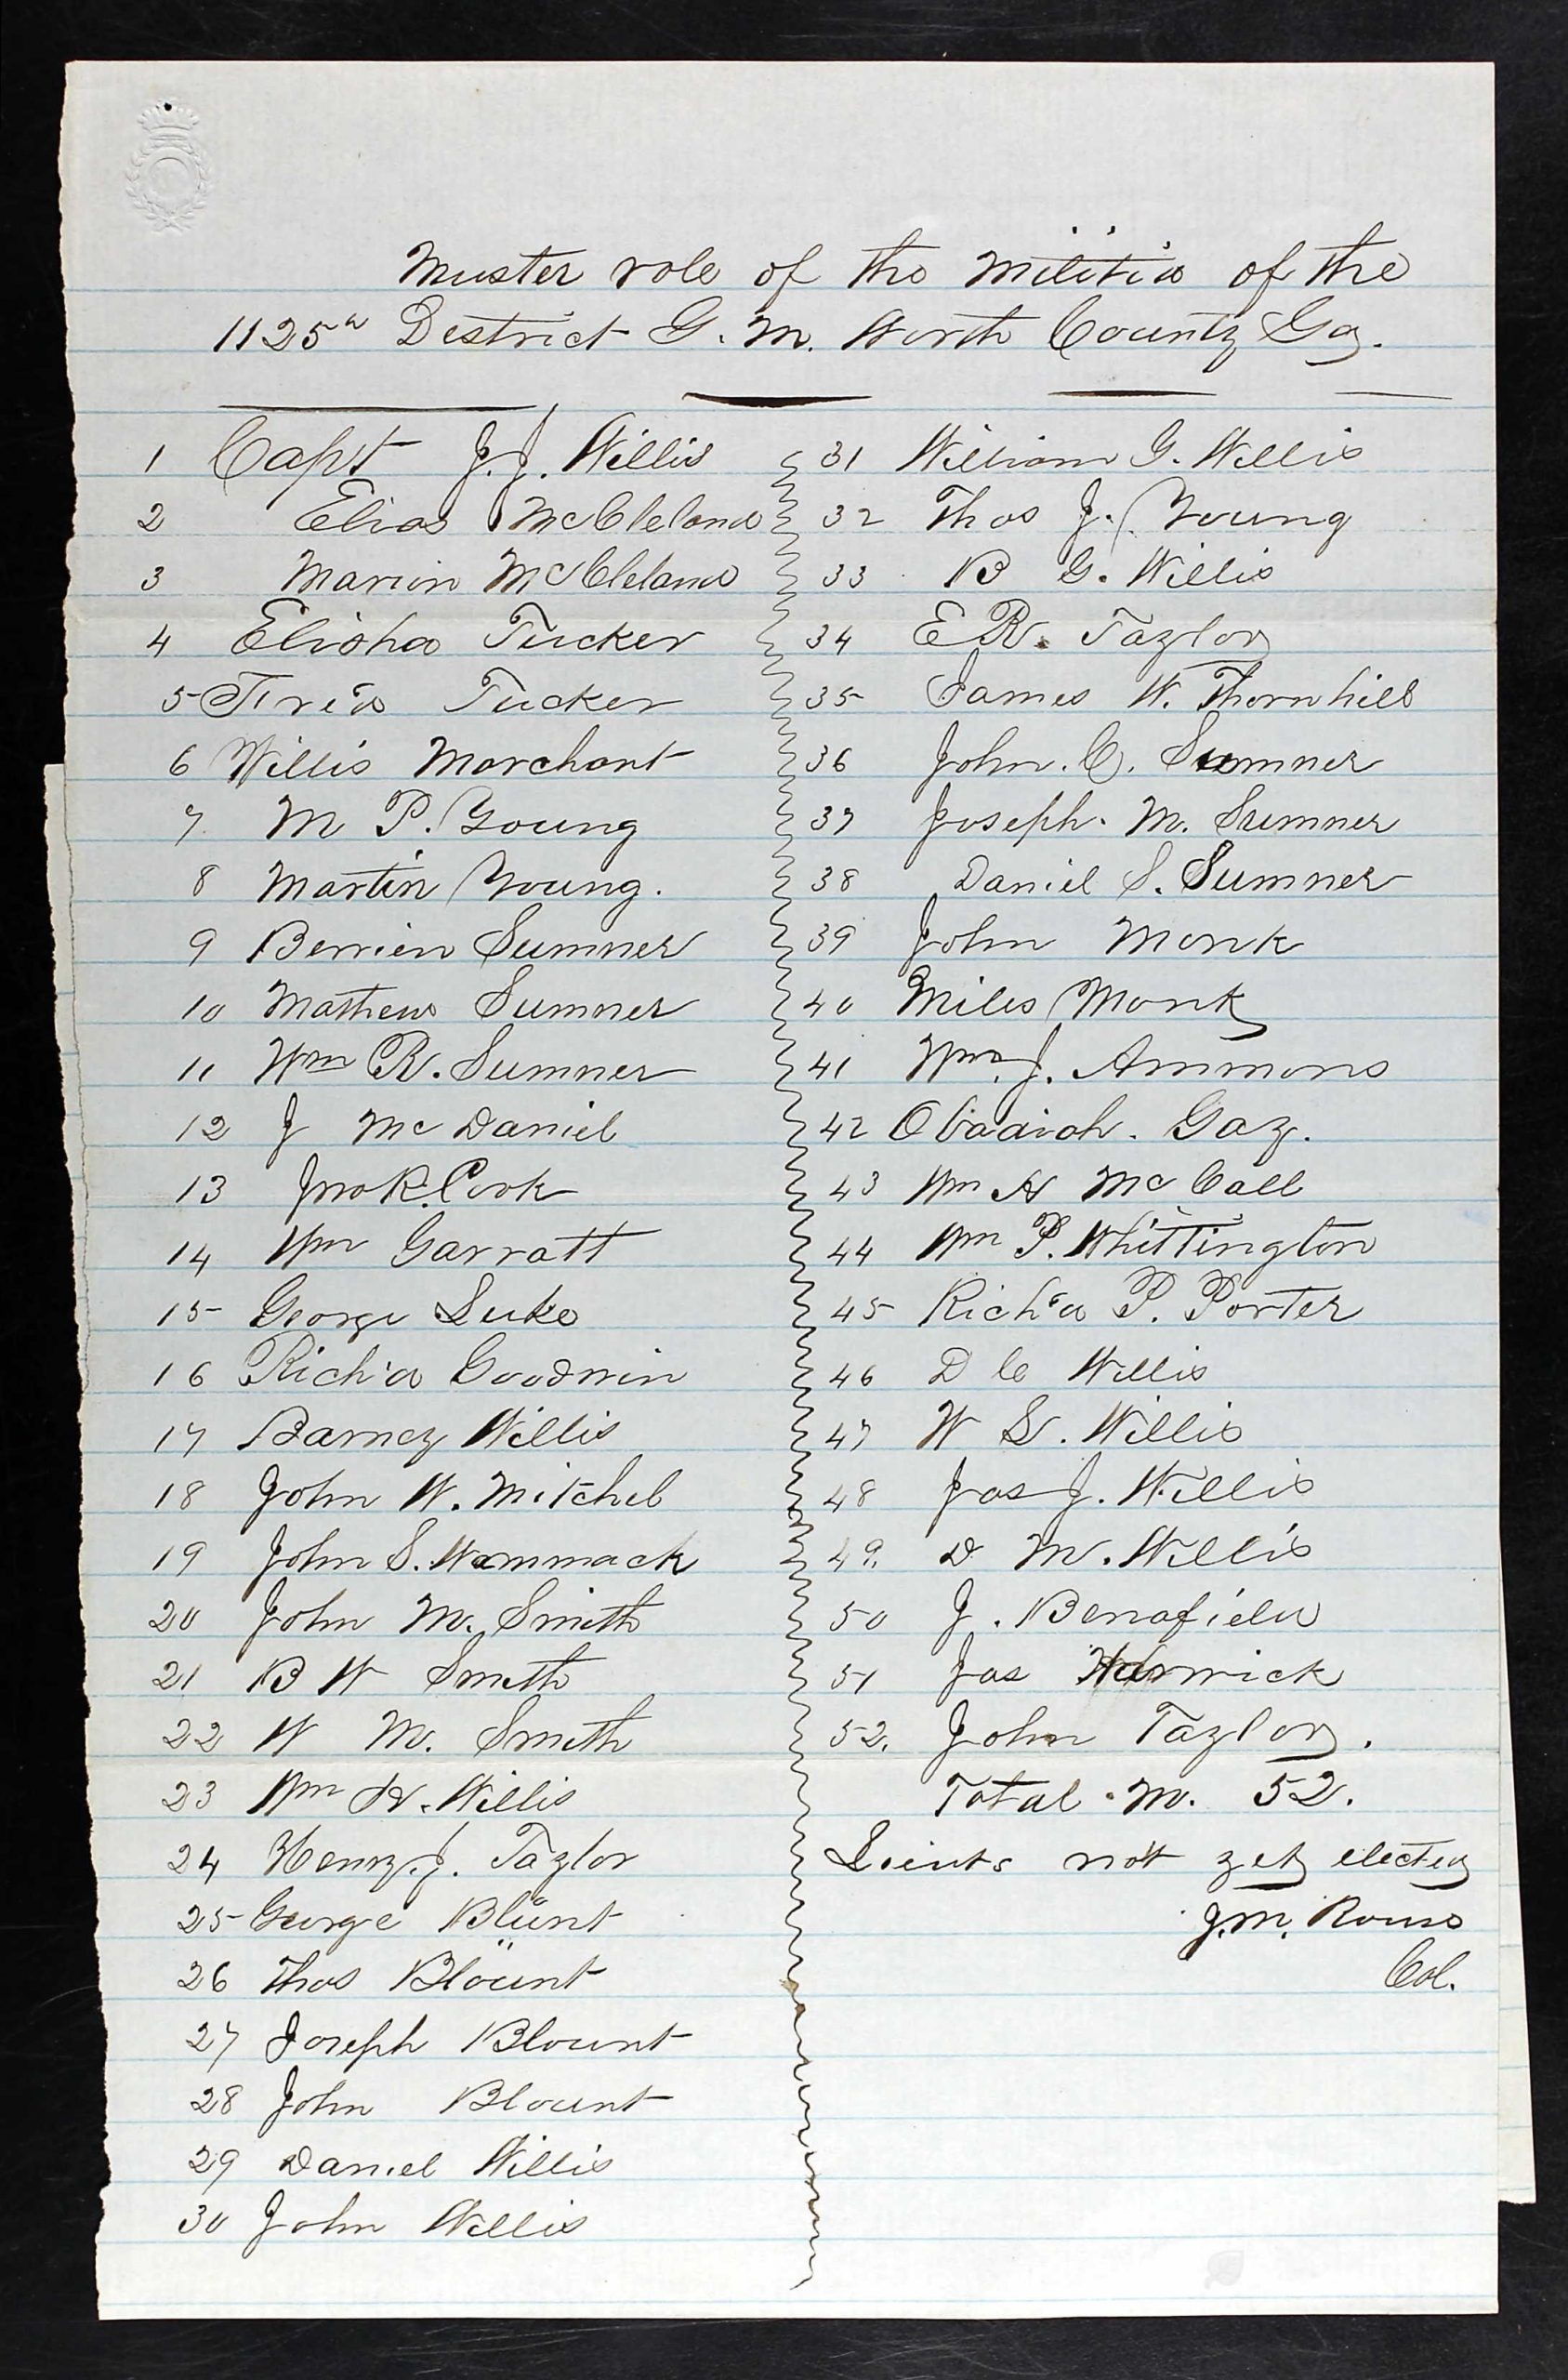 Muster role of the Militia of the
1125th District G. M. Worth County Ga.
1 Capt J. J. Willis
2 Elias McCleland
3 Marion McCleland
4 Elisha Tucker
5 Tucker
6 Willis Marchant
7 M P. Young
8 Martin Young.
9 Berrien Sumner
10 Mathew Sumner
11 Wm R. Sumner
12 J McDaniel
13 Jno R. Cook
14 Wm Garratt
15 George Luke
16 Rich'd Goodwin
17 Barney Willis
18 John W. Mitchel
19 John S. Wammack
20 John M. Smith
21 B W Smith
22 W M. Smith
23 Wm H. Willis
24 Henry J. Taylor
25 George Blunt
26 Thos Blount
27 Joseph Blount
28 John Blount
29 Daniel Willis
30 John Willis
31 William G. Willis
32 Thos J. Young
33 B G. Willis
34 E R. Taylor
35 James W. Thornhill
36 John. C. Sumner
37 Joseph. M. Sumner
38 Daniel S. Sumner
39 John Monk
40 Miles Monk
41 Wm. J. Ammons
42 Obadiah. Gay.
43 Wm H McCall
44 Wm P. Whittington
45 Rich'd P. Porter
46 D C Willis
47 W S. Willis
48 Jas J. Willis
49. D M. Willis
50 J. Benafield
51 Jas Warwick
52. John Taylor.
Total. M. 52.
Lieuts not yet elected
J. M. Rouse
Col.